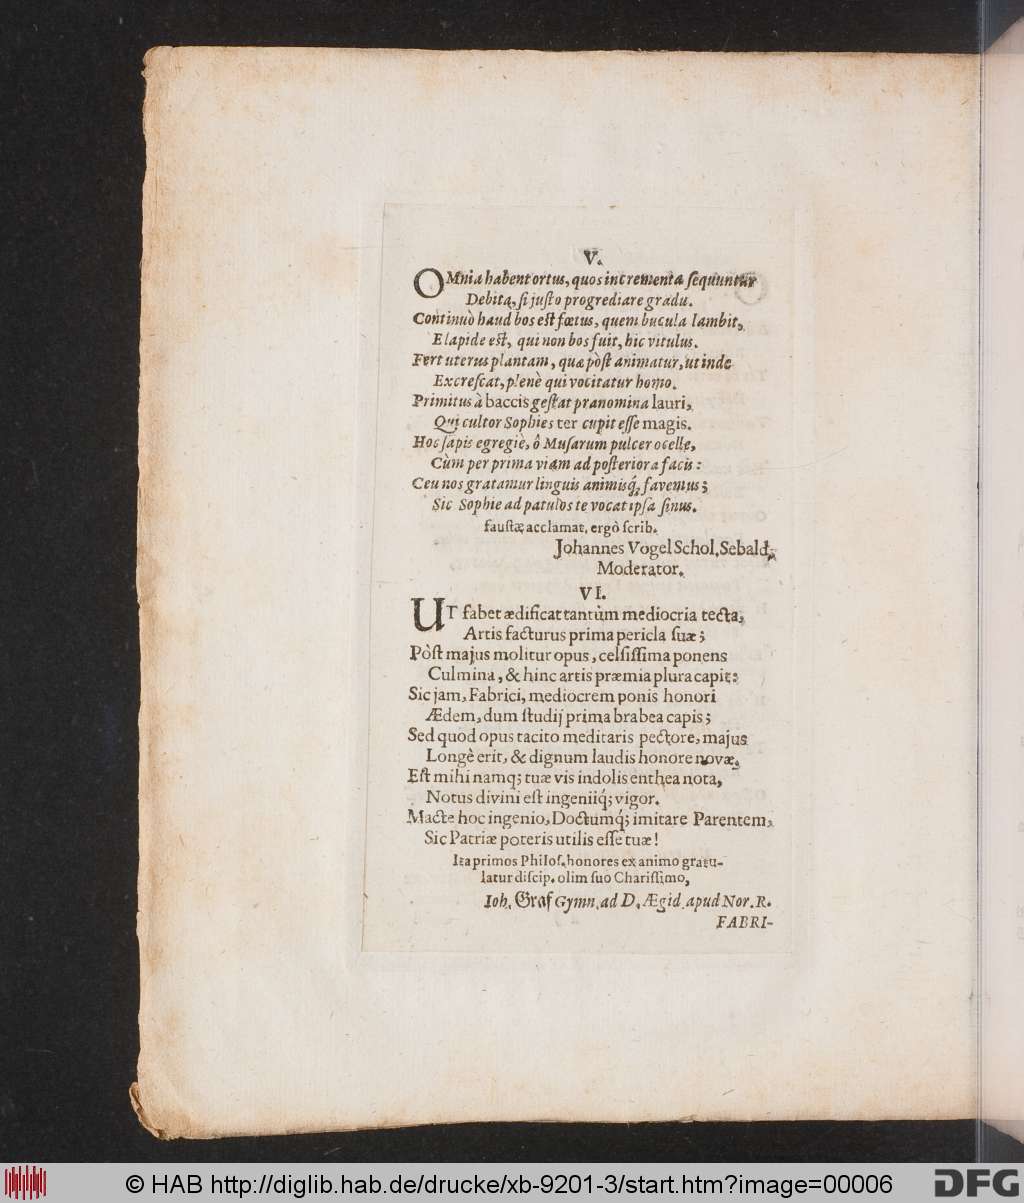 V.
OMnia habent ortus, quos incrementa sequuntur
Debita, si justo progrediare gradu.
Continuò haud bos est fœtus, quem bucula lambit,
E lapide est, qui non bos fuit, hic vitulus.
Fert uterus plantam, quæ pòst animatur, ut inde
Excrescat, plenè qui vocitatur homo.
Primitus à baccis gestat prænomina lauri,
Qui cultor Sophies ter cupit esse magis.
Hoc sapis egregiè, ô Musarum pulcer ocelle,
Cùm per prima viam ad posteriora facis:
Ceu nos gratamur linguis animisq́, favemus;
Sic Sophie ad patulos te vocat ipsa sinus.
faustæ acclamat, ergò scrib.
Johannes Vogel Schol. Sebald.
Moderator.
VI.
UT faber ædificat tantùm mediocria tecta,
Artis facturus prima pericla suæ;
Pòst majus molitur opus, celsissima ponens
Culmina, & hinc artis præmia plura capit:
Sic jam, Fabrici, mediocrem ponis honori
Ædem, dum studij prima brabea capis;
Sed quod opus tacito meditaris pectore, majus
Longè erit, & dignum laudis honore novæ.
Est mihi namq; tuæ vis indolis enthea nota,
Notus divini est ingeniiq́; vigor.
Macte hoc ingenio, Doctumq́; imitare Parentem,
Sic Patriæ poteris utilis esse tuæ!
Ita primos Philos. honores ex animo gratu-
latur discip. olim suo Charissimo,
Ioh. Graf Gymn. ad D. Ægid. apud Nor. R.
FABRI-
© HAB http://diglib.hab.de/drucke/xb-9201-3/start.htm?image=00006
DFG